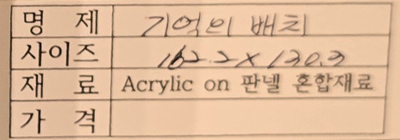 명 제 기억의 배치
사이즈 162.2 x 130.3
재 료 Acrylic on 판넬 혼합재료
가 격